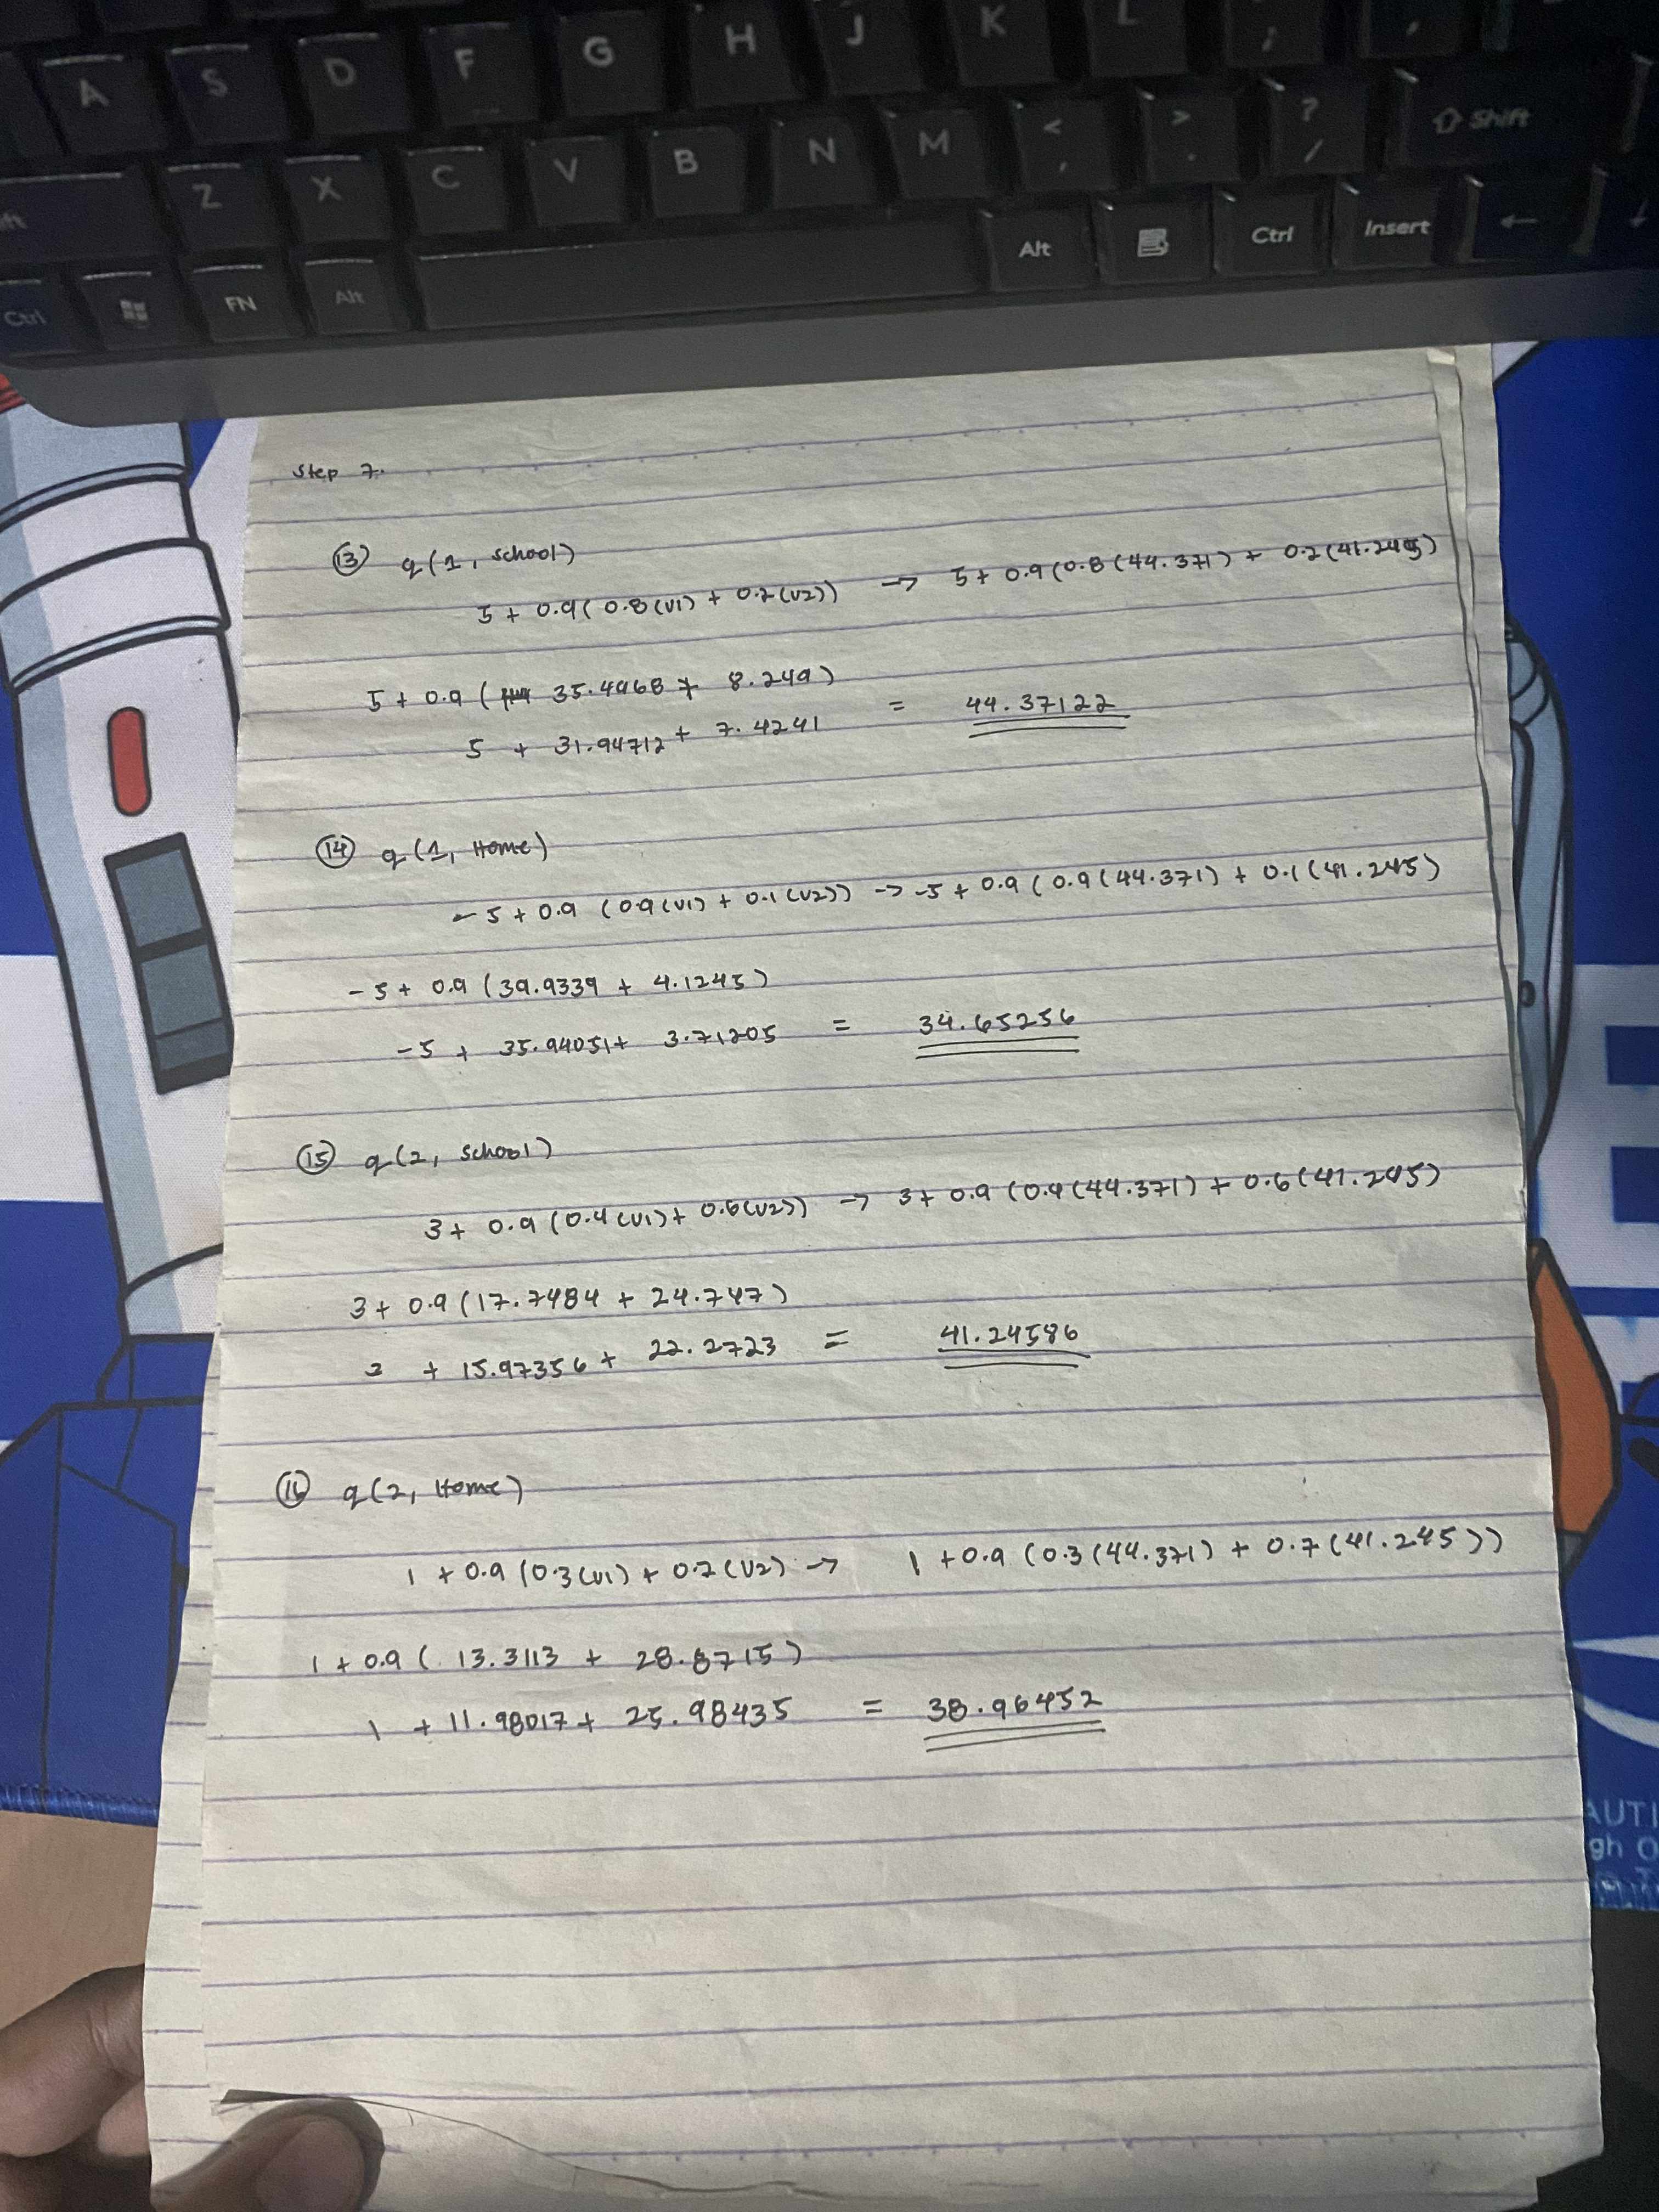 A S D F G H J K L ; ,
Z X C V B N M < , > . ? / Shift
Ctrl FN Alt Alt Ctrl Insert
Step 7.
13 q(1, School)
5 + 0.9(0.8(V1) + 0.2(V2)) → 5 + 0.9(0.8(44.371) + 0.2(41.245)
5 + 0.9 ( 35.4968 + 8.249)
5 + 31.94712 + 7.4241 = 44.37122
14 q(1, Home)
-5 + 0.9 (0.9(V1) + 0.1(V2)) → -5 + 0.9 (0.9(44.371) + 0.1(41.245)
-5 + 0.9 (39.9339 + 4.1245)
-5 + 35.94051 + 3.71205 = 34.65256
15 q(2, School)
3 + 0.9 (0.4(V1) + 0.6(V2)) → 3 + 0.9 (0.4(44.371) + 0.6(41.245)
3 + 0.9 (17.7484 + 24.747)
3 + 15.97356 + 22.2723 = 41.24586
16 q(2, Home)
1 + 0.9 (0.3(V1) + 0.7(V2) → 1 + 0.9 (0.3(44.371) + 0.7(41.245))
1 + 0.9 ( 13.3113 + 28.8715)
1 + 11.98017 + 25.98435 = 38.96452
AUTI
gh O